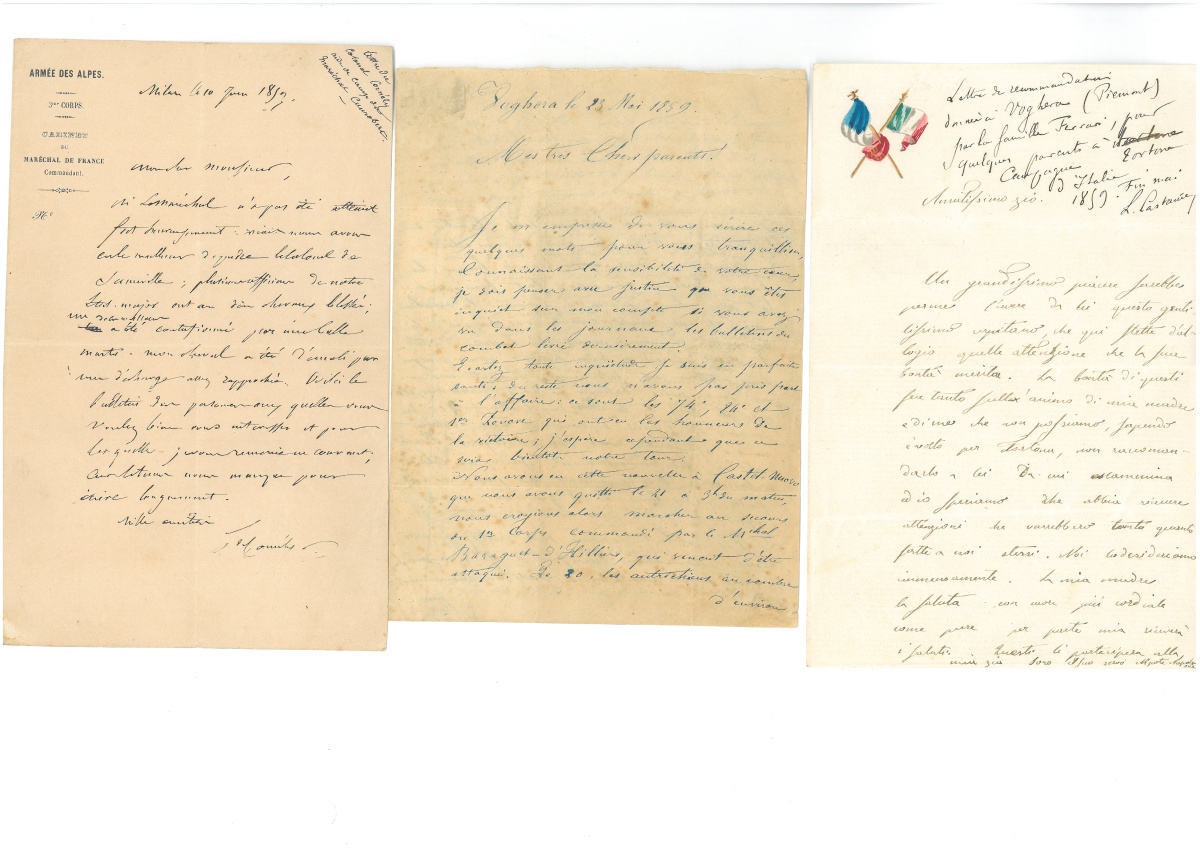 ARMÉE DES ALPES.
3me CORPS.
CABINET
DU
MARÉCHAL DE FRANCE
Commandant.
No
Lettre du
colonel Cornély
aide de camp du
maréchal Canrobert.
Milan le 10 Juin 1859.
mon cher monsieur,
Le Maréchal n'a pas été atteint
fort heureusement : mais nous avons
eu le malheur de perdre le colonel de
Senneville ; plusieurs officiers de notre
État-major ont eu des chevaux blessés,
un
a été contusionné par une balle
morte. mon cheval a été par
une décharge assez rapprochée. Voici le
bulletin
voulez bien vous intéresser et pour
car le temps nous manque pour
écrire longuement.
mille amitiés
Voghera le 23 Mai 1859.
Mes très Chers parents !
Je m'empresse de vous écrire ces
quelques mots pour vous tranquilliser,
Connaissant la sensibilité de votre cœur,
je dois penser avec justice que vous êtes
inquiet sur mon compte si vous avez
vu dans les journaux les bulletins du
combat livré dernièrement.
Ecartez toute inquiétude je suis en parfaite
santé, du reste nous n'avons pas pris part
à l'affaire : ce sont les 74e, 84e et
1er Zouave qui ont eu les honneurs de
la victoire ; j'espère cependant que ce
sera bientôt notre tour.
Nous avons eu cette nouvelle à Castel-Nuovo
que nous avons quitté le 21 à 3h du matin,
nous croyions alors marcher au secours
du 1er Corps commandé par le Mchal
Baraguet-d'Hilliers, qui venait d'être
attaqué. Le 20, les autrichiens au nombre
d'environ
Lettre de recommandation
donnée à Voghera (Piémont)
par la famille Ferrari, pour
quelques parents à
Tortone
Campagne
d'Italie
1859. Fin mai
Amatissimo zio.
Un grandissimo piacere sarebbe
questo genti
lissimo
quelle attenzione che la sua
bontà merita. La bontà di questi
fu tanta sull'animo di mia madre
e di me che non possiamo, sapendo
per Tortona, non raccoman-
darlo a lei
ed io speriamo che abbia ricevere
attenzioni che varrebbero tanto quanto
fatte a noi stessi. Noi
immensamente. La mia madre
la saluta con cuore più cordiale
come pure per parte mia riceverà
i saluti. Questi li parteciperà alla
mia zia Sono suo